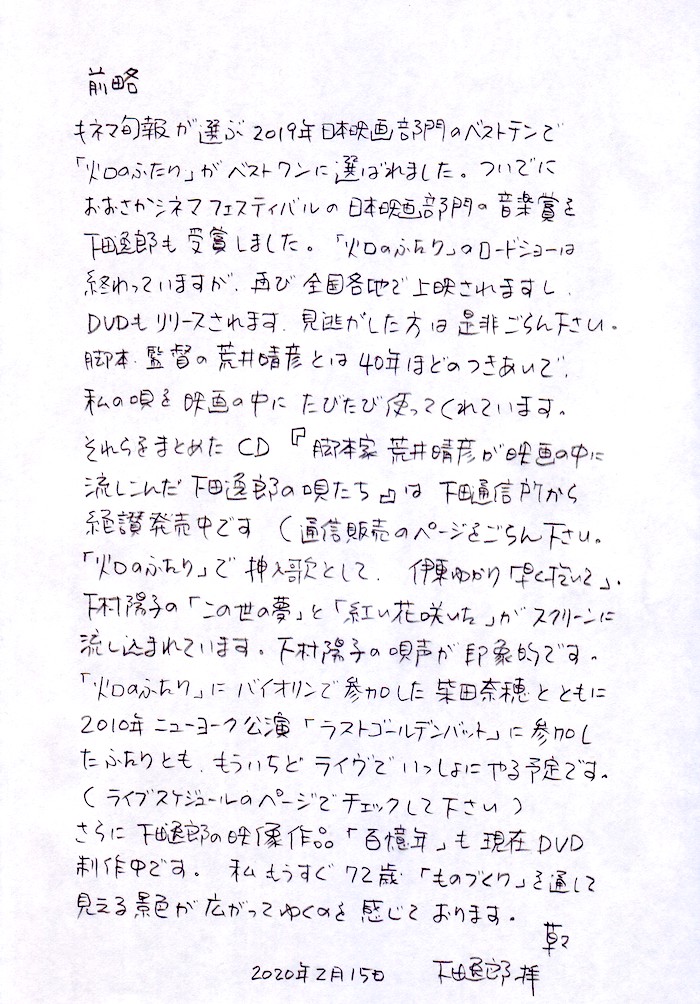 前略
キネマ旬報が選ぶ2019年日本映画部門のベストテンで
「火口のふたり」がベストワンに選ばれました。ついでに
おおさかシネマフェスティバルの日本映画部門の音楽賞を
下田逸郎も受賞しました。「火口のふたり」のロードショーは
終わっていますが、再び全国各地で上映されますし、
DVDもリリースされます、見逃がした方は是非ごらん下さい。
脚本・監督の荒井晴彦とは40年ほどのつきあいで、
私の唄を映画の中にたびたび使ってくれています。
それらをまとめたCD『脚本家 荒井晴彦が映画の中に
流しこんだ下田逸郎の唄たち』は下田通信所から
絶讃発売中です（通信販売のページをごらん下さい。
「火口のふたり」で挿入歌として、伊東ゆかり「早く抱いて」、
下村陽子の「この世の夢」と「紅い花咲いた」がスクリーンに
流し込まれています。下村陽子の唄声が印象的です。
「火口のふたり」にバイオリンで参加した柴田奈穂とともに
2010年ニューヨーク公演「ラストゴールデンバット」に参加し
たふたりとも、もういちどライヴでいっしょにやる予定です。
（ライブスケジュールのページでチェックして下さい）
さらに下田逸郎の映像作品「百億年」も現在DVD
制作中です。私もうすぐ72歳・「ものづくり」を通して
見える景色が広がってゆくのを感じております。
草々
2020年2月15日 下田逸郎 拝